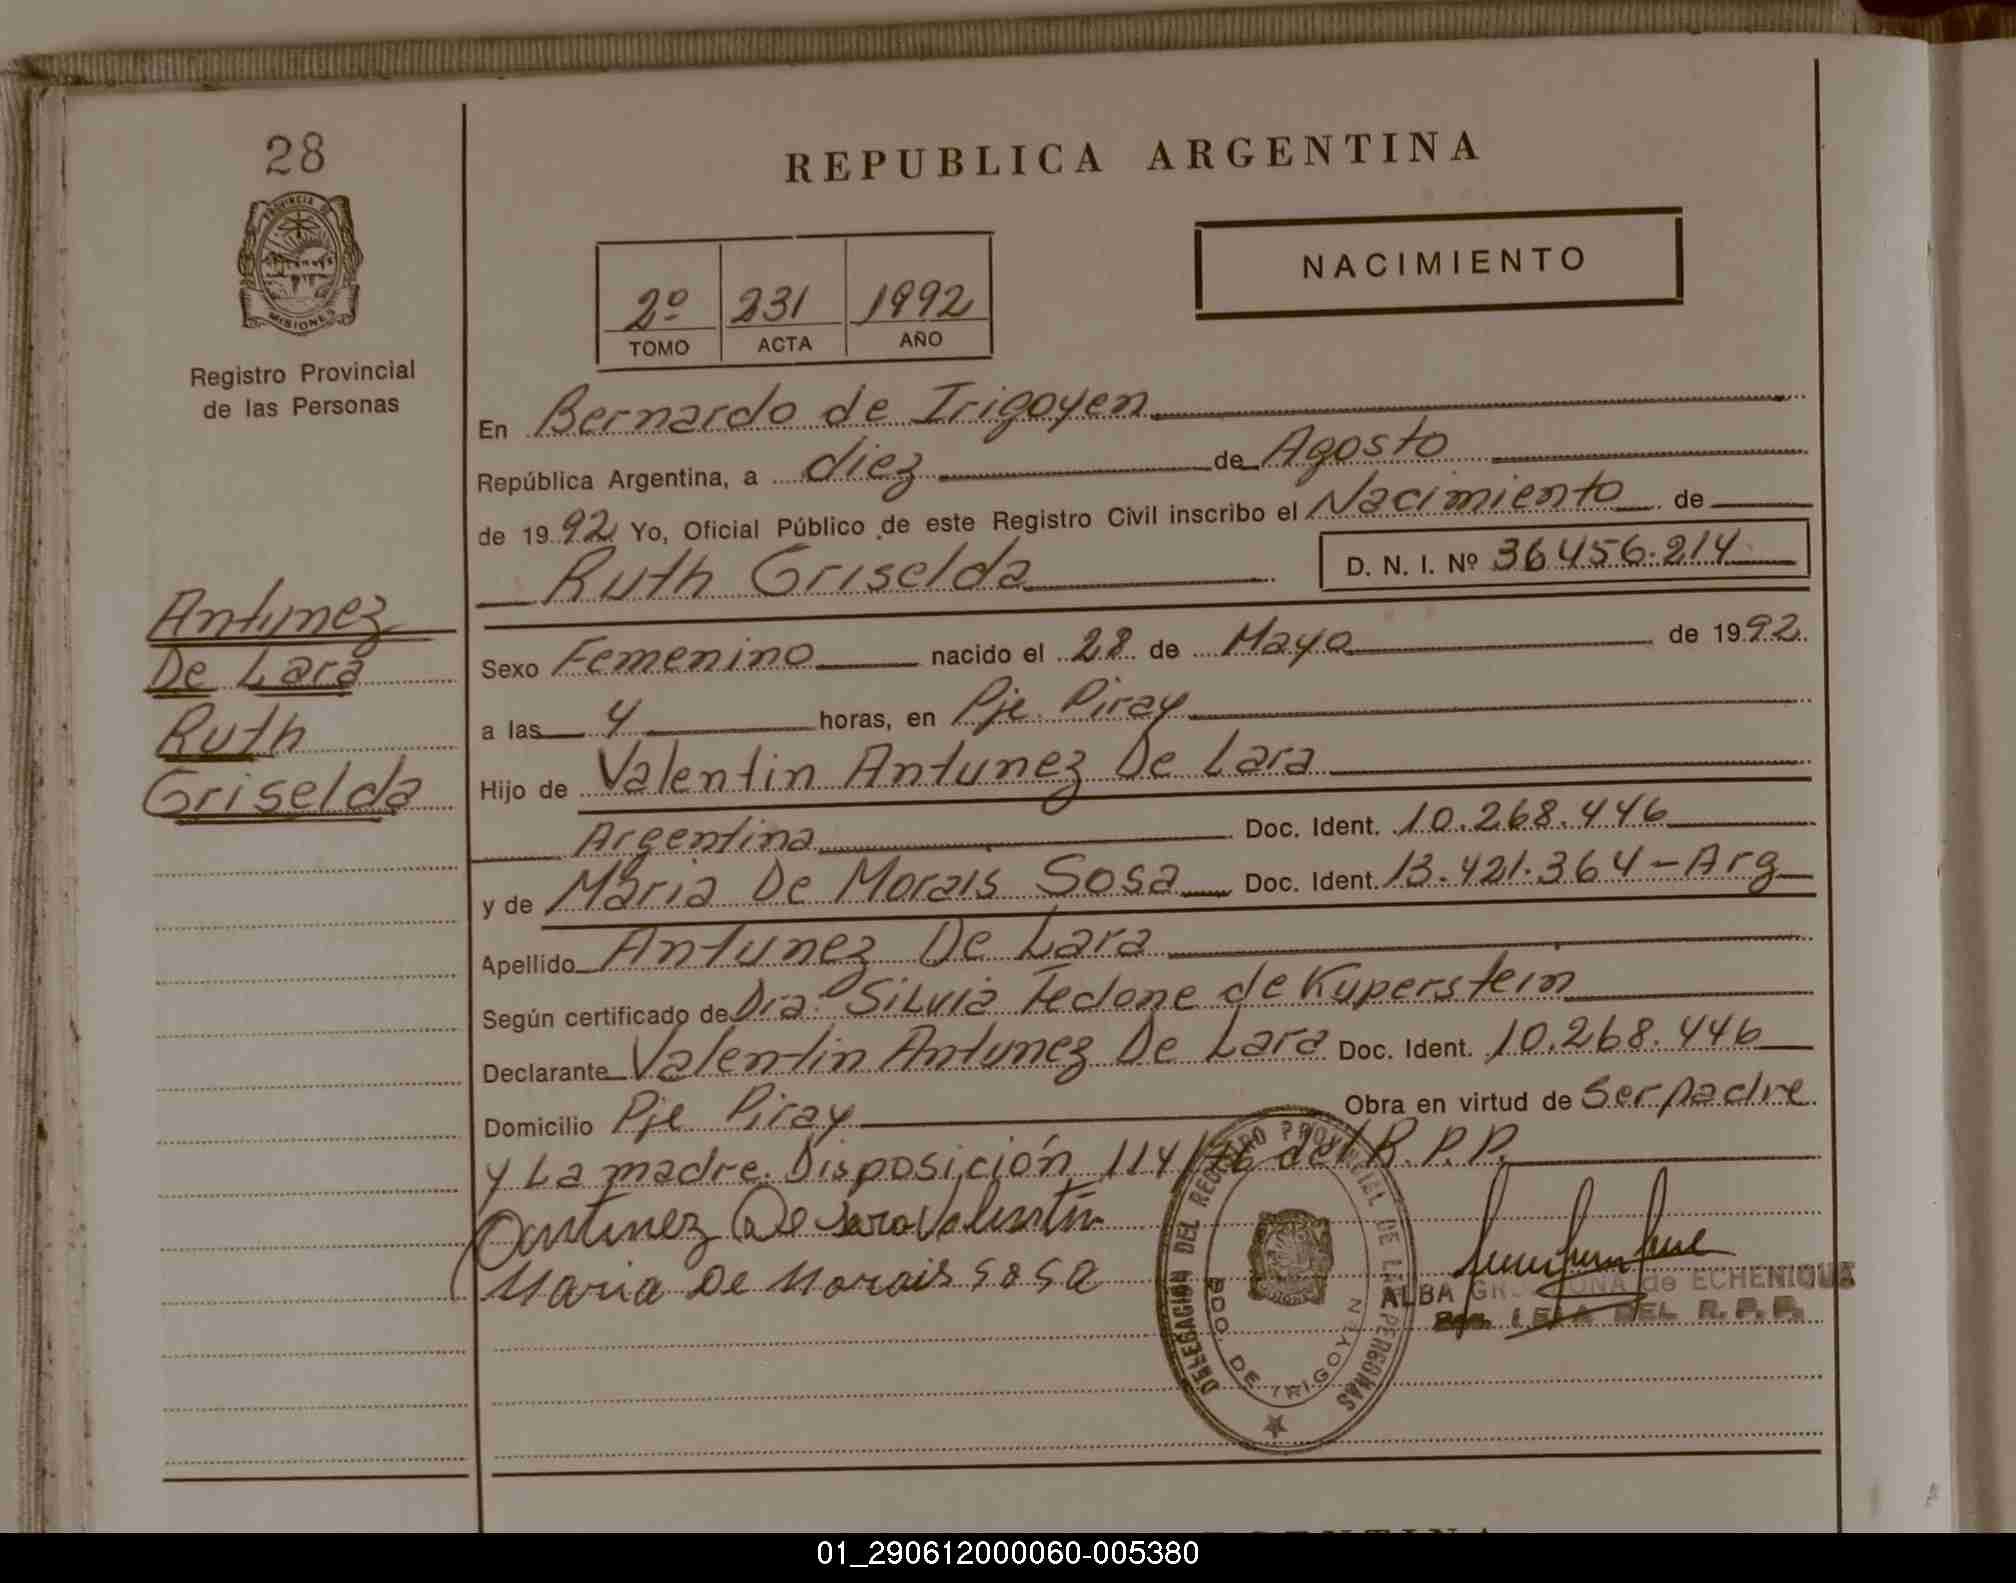 28
REPUBLICA ARGENTINA
PROVINCIA DE
MISIONES
Registro Provincial
de las Personas
2º 231 1992
TOMO ACTA AÑO
NACIMIENTO
En Bernardo de Irigoyen
República Argentina, a diez de Agosto
de 1992 Yo, Oficial Público de este Registro Civil inscribo el Nacimiento de
Ruth Griselda D. N. I. Nº 36456.214
Antunez
De Lara
Ruth
Griselda
Sexo Femenino nacido el 28 de Mayo de 1992.
a las 4 horas, en Pje. Piray
Hijo de Valentin Antunez De Lara
Argentina Doc. Ident. 10.268.446
y de Maria De Morais Sosa Doc. Ident. 13.421.364-Arg
Apellido Antunez De Lara
Según certificado de Dra. Silvia Fedone de Kuperstein
Declarante Valentin Antunez De Lara Doc. Ident. 10.268.446
Domicilio Pje Piray Obra en virtud de Ser padre
y La madre. Disposición 114/76 del R.P.P.
Antunez De Lara Valentin
Maria De Morais Sosa
DELEGACION DEL REGISTRO PROVINCIAL DE LAS PERSONAS
BDO. DE IRIGOYEN
ALBA de ECHENIQUE
DEL R. P. P.
01_290612000060-005380